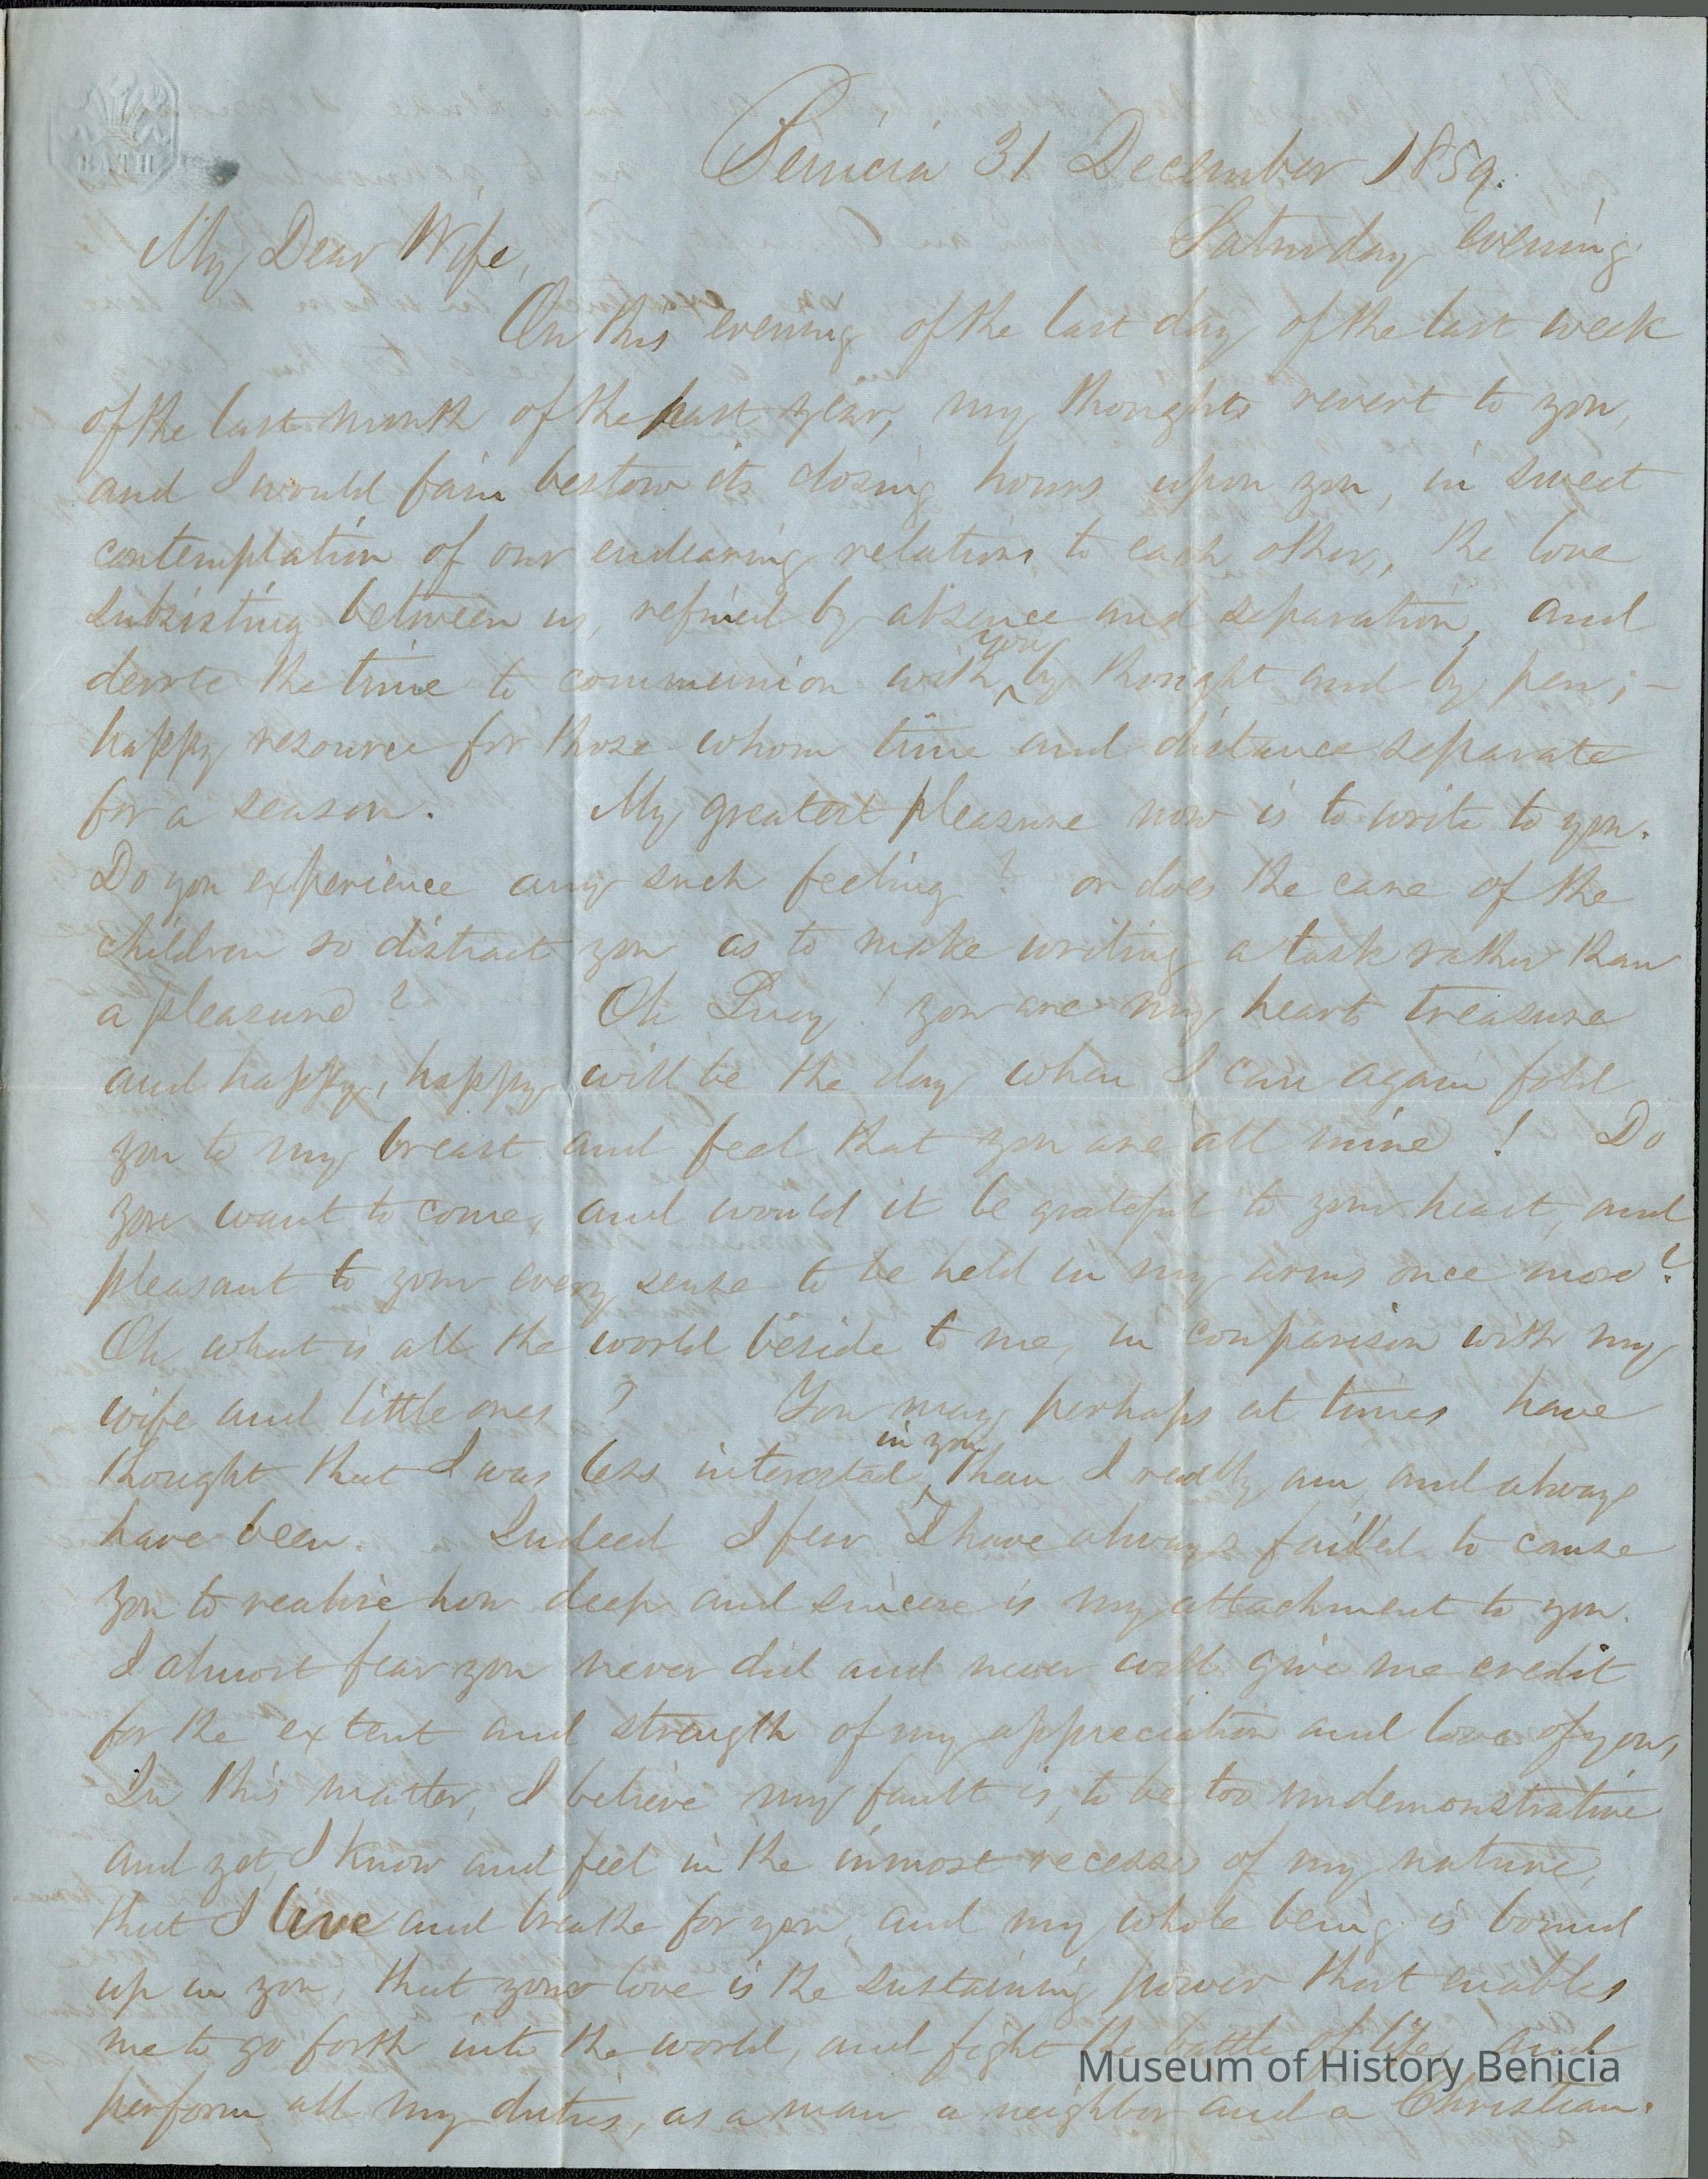 BATH
Benicia 31 December 1859.
My Dear Wife, Saturday evening.
On this evening of the last day of the last week
of the last month of the past year, my thoughts revert to you,
and I would fain bestow its closing hours upon you, in sweet
contemplation of our endearing relations to each other, the love
subsisting between us, refined by absence and separation, and
devote the time to communion with you by thought and by pen; –
happy resource for those whom time and distance separate
for a season. My greatest pleasure now is to write to you.
Do you experience any such feeling? or does the care of the
children so distract you as to make writing a task rather than
a pleasure? Oh Lucy! you are my hearts treasure
and happy, happy will be the day when I can again fold
you to my breast and feel that you are all mine! Do
you want to come, and would it be grateful to your heart, and
pleasant to your every sense to be held in my arms once more?
Oh what is all the world beside to me, in comparison with my
wife and little ones? You may perhaps at times have
thought that I was less interested in you than I really am, and always
have been. Indeed I fear I have always failed to cause
you to realise how deep and sincere is my attachment to you.
I almost fear you never did and never will give me credit
for the extent and strength of my appreciation and love of you,
In this matter, I believe my fault is, to be too undemonstrative
and yet, I know and feel in the inmost recesses of my nature,
that I live and breathe for you, and my whole being is bound
up in you, that your love is the sustaining power that enables
me to go forth into the world, and fight the battle of life, and
perform all my duties, as a man a neighbor and a Christian.
Museum of History Benicia